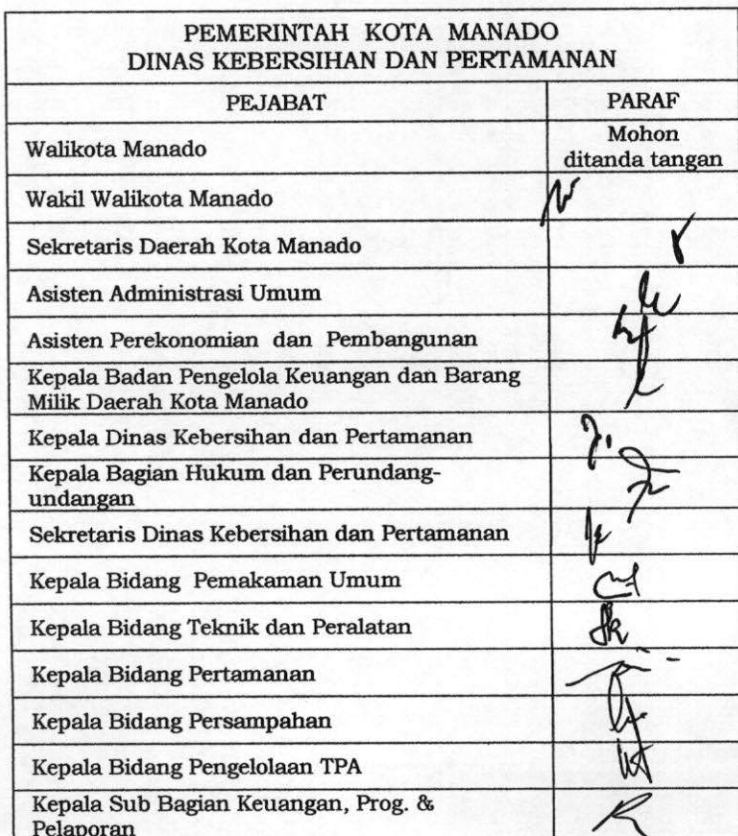 PEMERINTAH KOTA MANADO
DINAS KEBERSIHAN DAN PERTAMANAN
PEJABAT PARAF
Walikota Manado Mohon
ditanda tangan
Wakil Walikota Manado
Sekretaris Daerah Kota Manado
Asisten Administrasi Umum
Asisten Perekonomian dan Pembangunan
Kepala Badan Pengelola Keuangan dan Barang
Milik Daerah Kota Manado
Kepala Dinas Kebersihan dan Pertamanan
Kepala Bagian Hukum dan Perundang-
undangan
Sekretaris Dinas Kebersihan dan Pertamanan
Kepala Bidang Pemakaman Umum
Kepala Bidang Teknik dan Peralatan
Kepala Bidang Pertamanan
Kepala Bidang Persampahan
Kepala Bidang Pengelolaan TPA
Kepala Sub Bagian Keuangan, Prog. &
Pelaporan